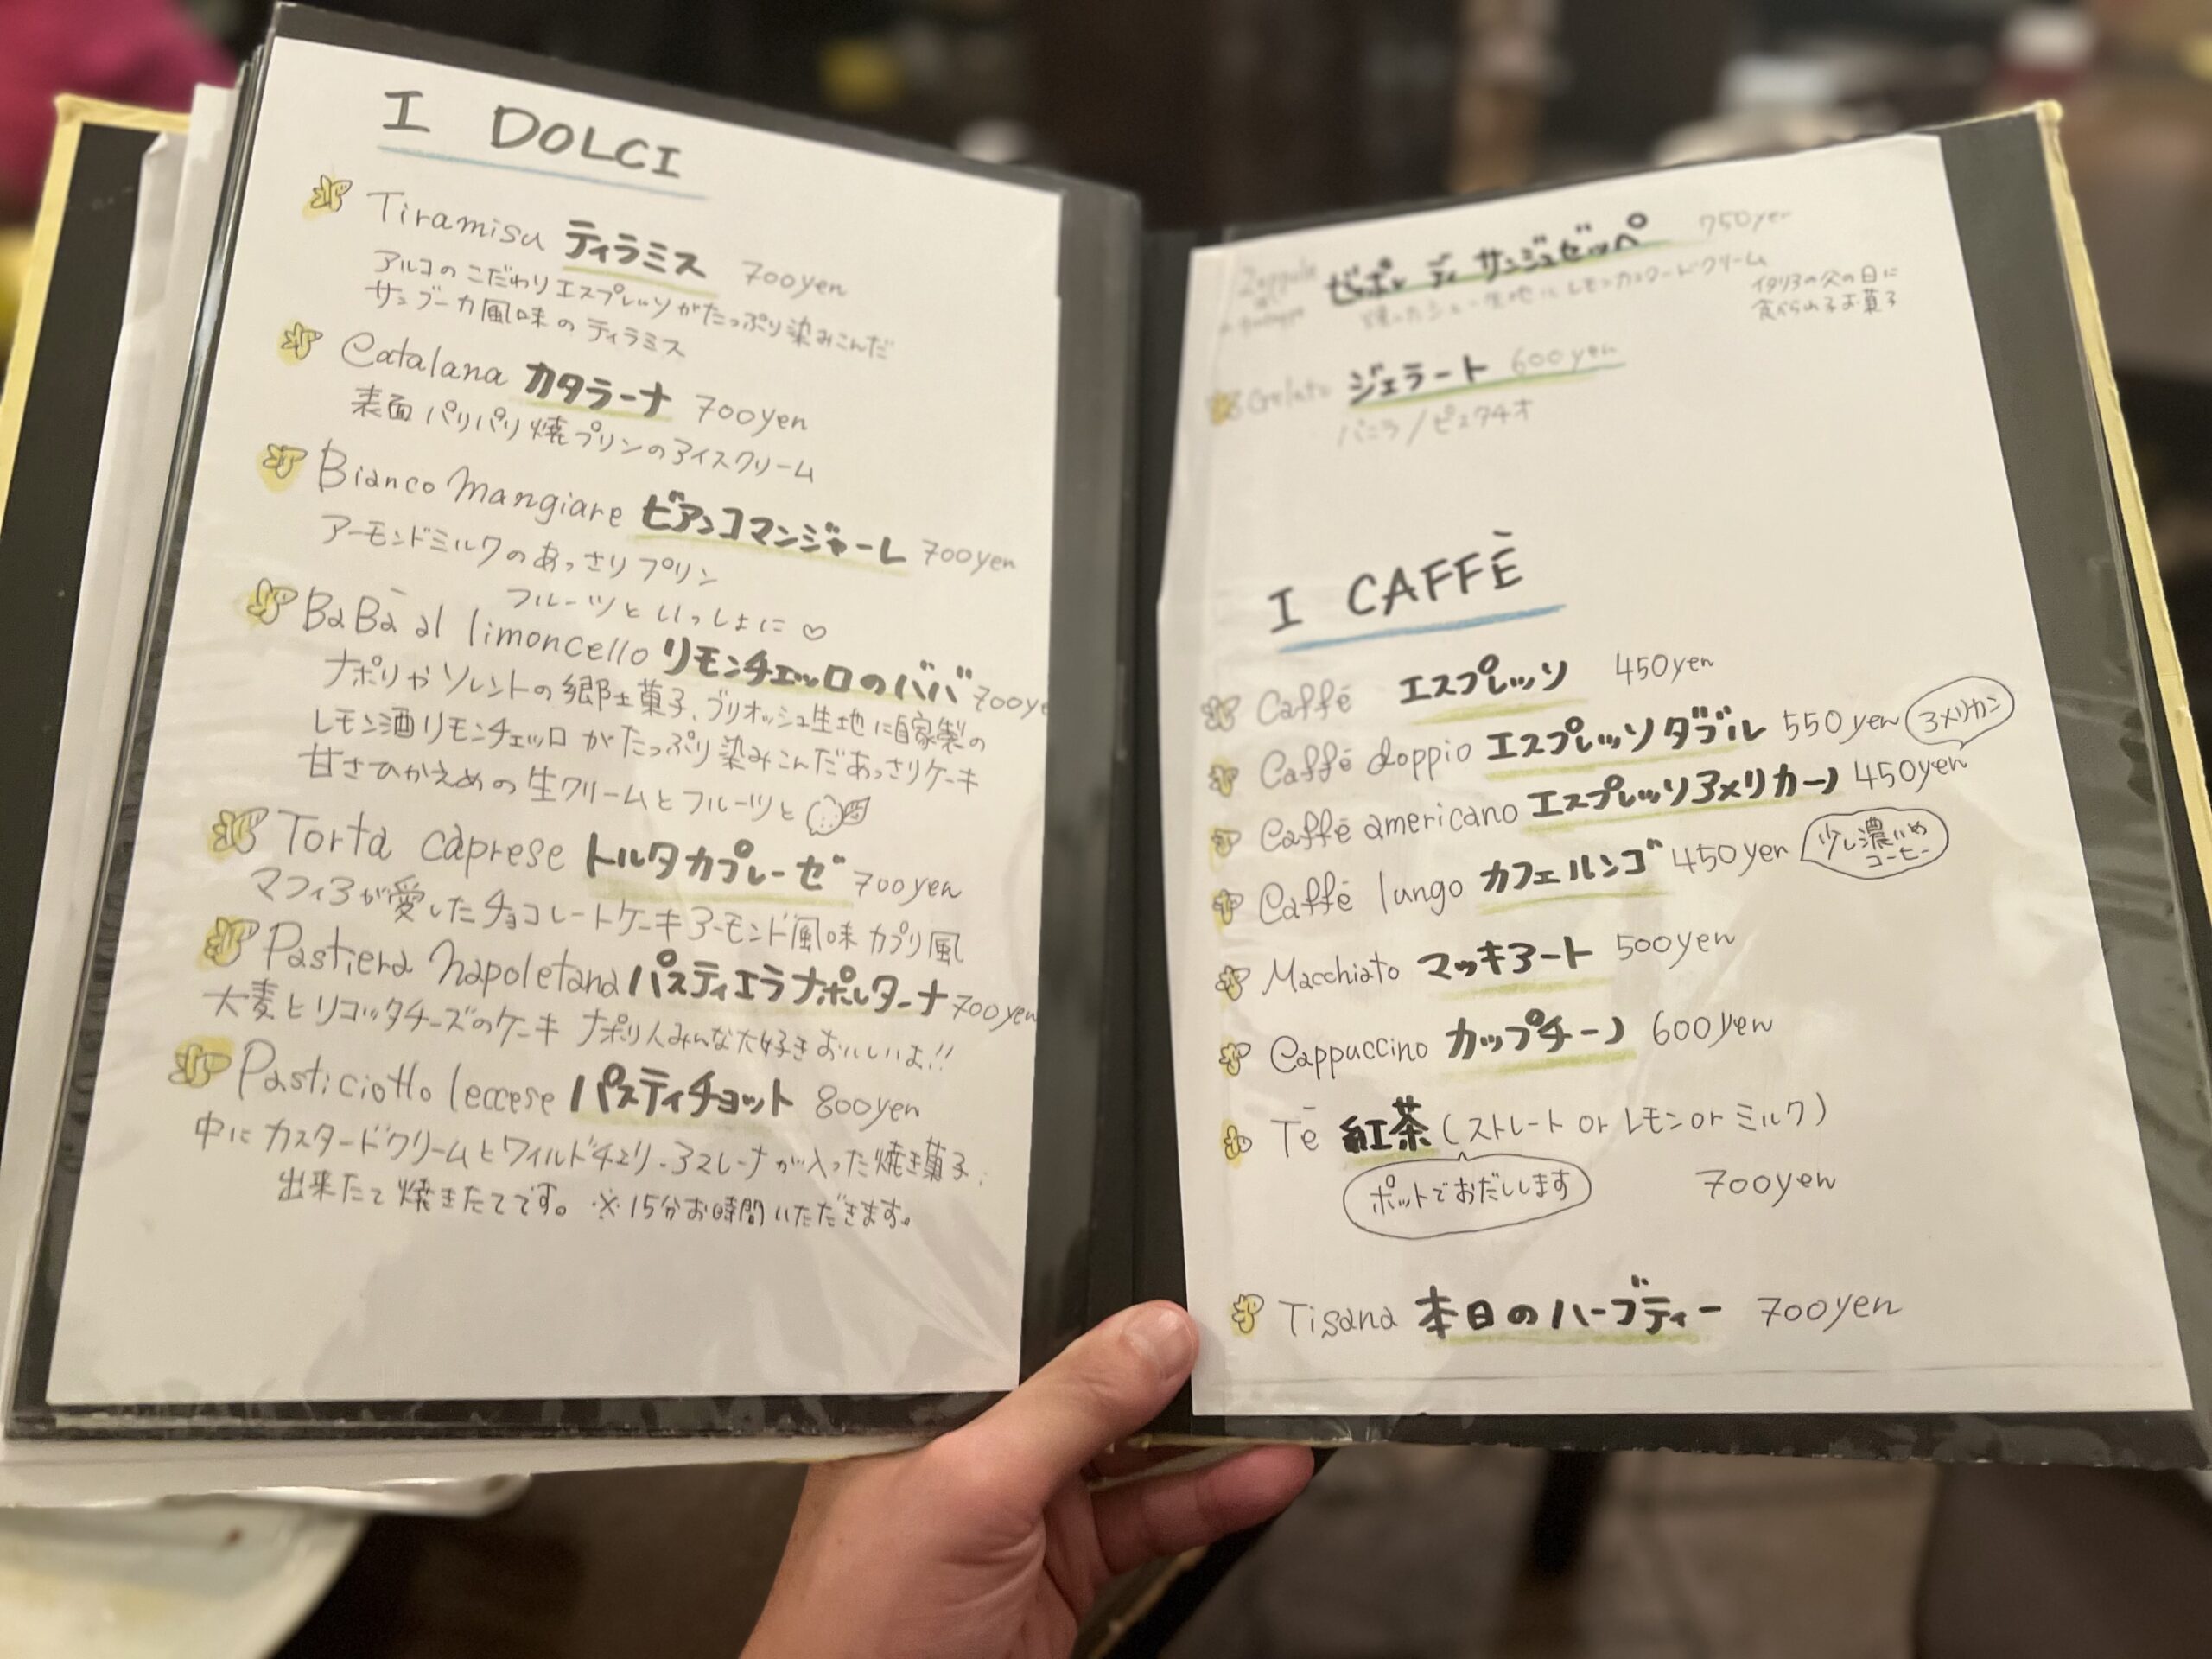 I DOLCI
Tiramisu ティラミス 700yen
アルコのこだわりエスプレッソがたっぷり染みこんだ
サンブーカ風味のティラミス
Catalana カタラーナ 700yen
表面パリパリ焼プリンのアイスクリーム
Bianco mangiare ビアンコマンジャーレ 700yen
アーモンドミルクのあっさりプリン
フルーツといっしょに♡
BaBà al limoncello リモンチェッロのババ 700ye
ナポリやソレントの郷土菓子、ブリオッシュ生地に自家製の
レモン酒リモンチェッロがたっぷり染みこんだあっさりケーキ
甘さひかえめの生クリームとフルーツと
Torta caprese トルタカプレーゼ 700yen
マフィアが愛したチョコレートケーキアーモンド風味カプリ風
Pastiera napoletana パスティエラナポルターナ 700yen
大麦とリコッタチーズのケーキ ナポリ人みんな大好きおいしいよ!!
Pasticiotto leccese パスティチョット 800yen
中にカスタードクリームとワイルドチェリーアマレーナが入った焼き菓子
出来たて焼きたてです。※15分お時間いただきます。
Zeppole di ゼッポレ ディ サンジュゼッペ 750yen
シュー生地に レモンカスタードクリーム
イタリアの父の日に
食べられるお菓子
Gelato ジェラート 600yen
バニラ/ピスタチオ
I CAFFÈ
Caffé エスプレッソ 450yen
Caffé doppio エスプレッソダブル 550yen
アメリカン
Caffé americano エスプレッソアメリカーノ 450yen
Caffé lungo カフェルンゴ 450yen
少し濃いめ
コーヒー
Macchiato マッキアート 500yen
Cappuccino カップチーノ 600yen
Tē 紅茶(ストレート or レモン or ミルク)
ポットでおだしします 700yen
Tisana 本日のハーブティー 700yen